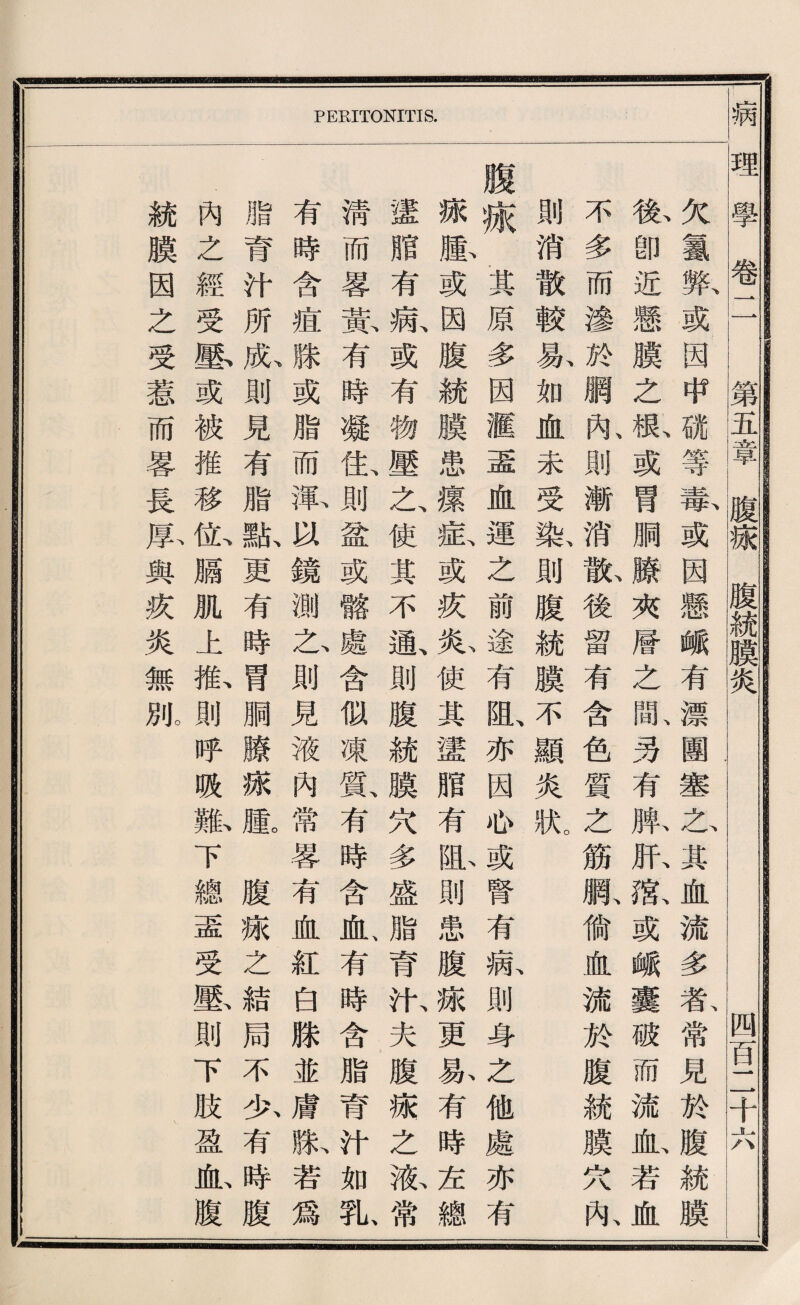 PERITONITIS.
病理學 卷二 第五章 腹㽷 腹統膜炎 四百二十六
欠氣弊、或因硄等毒、或因懸衇有漂團塞之、其血流多者、常見於腹統膜
後、卽近懸膜之根、或胃胴膫夾層之間、另有脾、肝、或衇囊破而流血、若血
不多而滲於膶內、則漸消散、後留有含色質之筋膶、倘血流於腹統膜穴內、
則消散較易、如血未受染、則腹統膜不顯炎狀。
腹㽷 其原多因滙衁血運之前途有阻、亦因心或腎有病、則身之他處亦有
㽷腫、或因腹統膜患瘰症、或疢炎、使其盝腤有阻、則患腹㽷更易、有時左總
盝腤有病、或有物壓之、使其不通、則腹統膜穴多盛脂育汁、夫腹㽷之液、常
淸而畧黃、有時凝住、則盆或髂處含似凍質、有時含血、有時含脂育汁如乳、
有時含疽脒或脂而渾、以鏡測之、則見液內常畧有血紅白脒並膚脒、若爲
脂育汁所成、則見有脂點、更有時胃胴膫㽷腫。 腹㽷之結局不少、有時腹
內之經受壓、或被推移位、膈肌上推、則呼吸難、下總衁受壓、則下肢盈血、腹
統膜因之受惹而畧長厚、與疢炎無別。